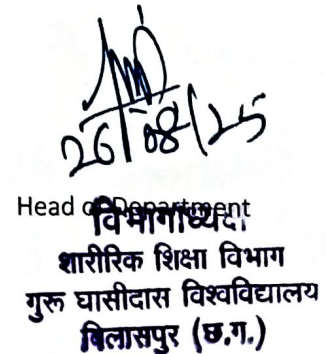 26/08/25
Head of Department
विभागाध्यक्ष
शारीरिक शिक्षा विभाग
गुरू घासीदास विश्वविद्यालय
बिलासपुर (छ.ग.)